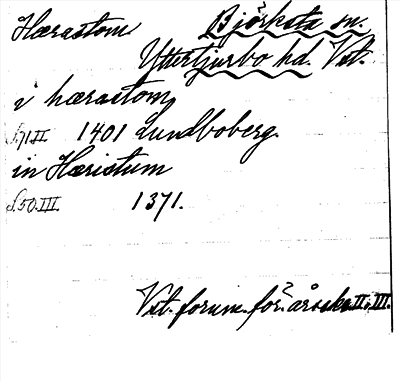 Hærastom Björksta sn.
Yttertjurbo hd. Vst.
i hærastom
S.71.II 1401 Lundboberg.
in Hæristum
S.50.III. 1371.
Vst. fornm. för. årsskr. II, III.